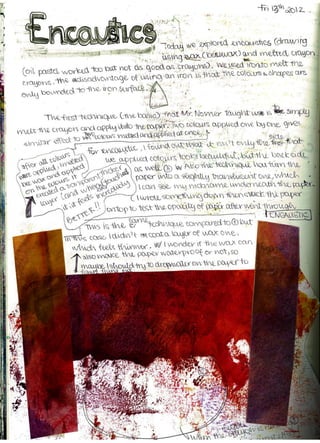 Fri 13th 2012
Encaustics
Today we explored encaustics (drawing
using wax (beeswax) and melted crayon
(oil pastel worked too but not as good as crayons). We used iron to melt the
crayons. The disadvantage of using an iron is that the colours & shapes are
only bounded to the iron surface.
The first technique (the basic) that Mr. taught us is simply
melt the crayons and apply onto the paper. Two colours applied one by one gives
similar effect to colours melted and applied at once.
After all colours
was applied, I melted
the wax and applied
on the colours. It
added a transparent
layer (and
it feels incredibly
BETTER!!
For encaustic, I found out that it isn't only the side that
we applied colours looks beautiful, but the back side
as well. Also the technique has turn the
paper into a slightly translucent one, which
I can see my nickname underneath the paper.
(I wrote something down then stuck the paper
on top to test the opacity of paper after went through
ENCAUSTIC)
This is the same technique compared to but
in this case I didn't coat a layer of wax one,
which feels thinner. I wonder if the wax can
also make the paper waterproof or not, so
maybe I should try to drop water on the paper to
When the